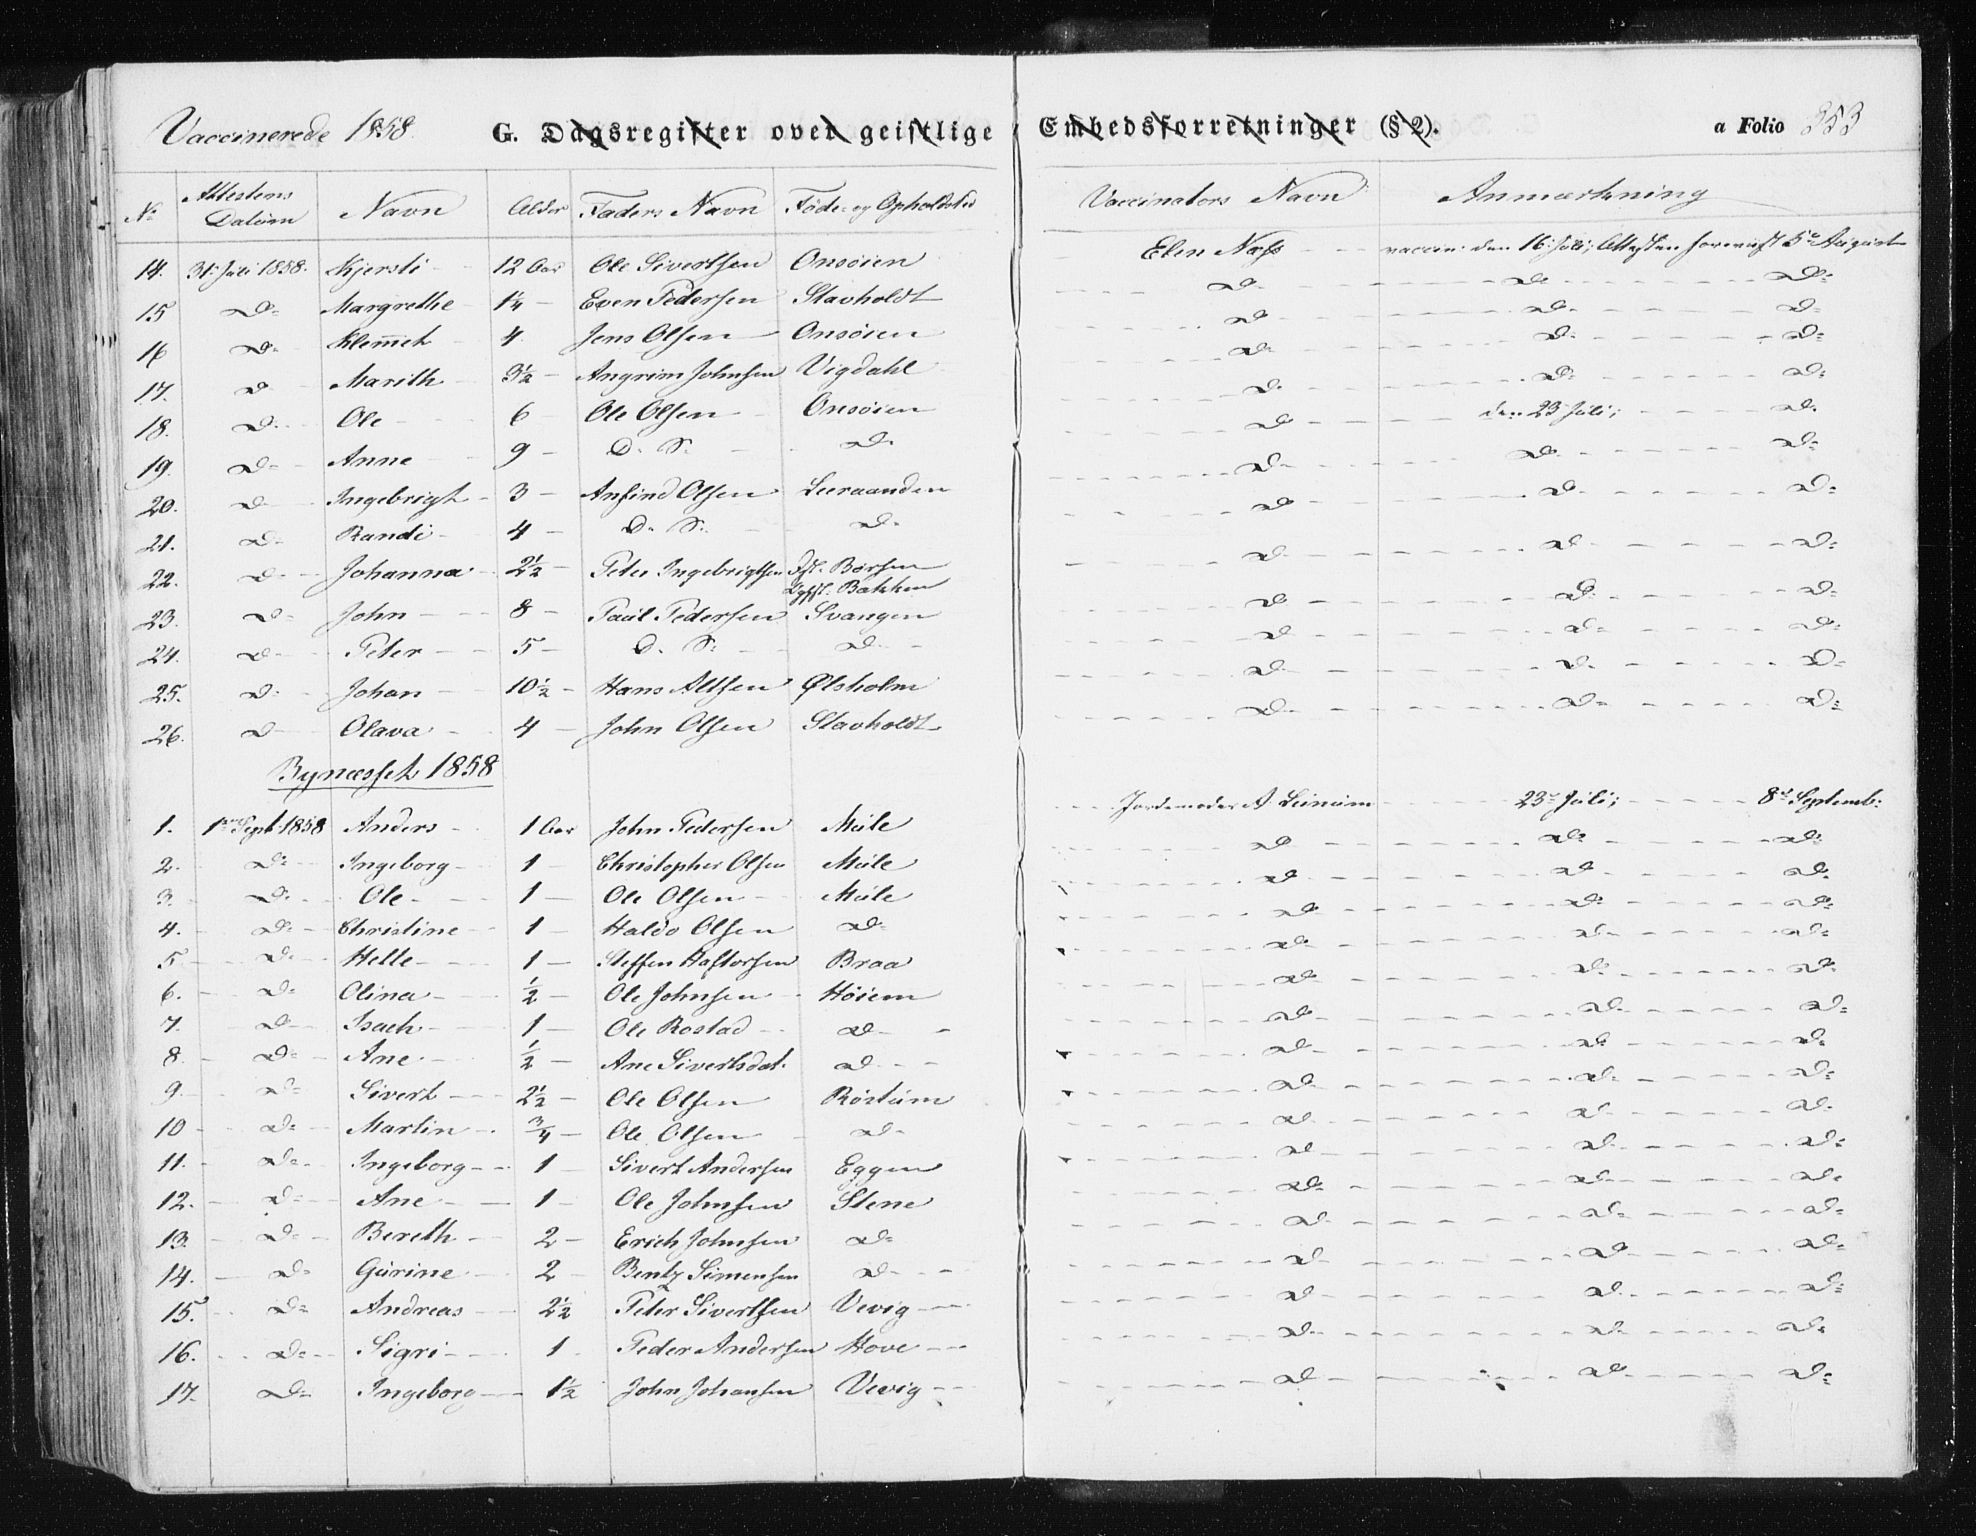 Vaccinerede 1858. G. Dagsregister over geistlige Embedsforretninger (§ 2). a Folio 353
No Attestens Datum Navn Alder Faders Navn Føde- og Opholdsted Vaccinators Navn Anmærkning
14. 31. Juli 1858. Kjersti 12 Aar Ole Sivertsen Onsøien Elen Næss vaccin: den 16. Juli; Attesten forevist 5te August
15 D= Margrethe 1¼ Even Pedersen Stavholdt D= D= D=
16 D= Klemeth 4 Jens Olsen Onsøien D D D=
17. D Marith 3½ Angrim Johnsen Vigdahl D= D= D=
18. D. Ole 6 Ole Olsen Onsøien D. D= D=
19. D= Anne 9 D. S. D= D den 23 Juli; D.
20. D Ingebrigt 3 Anfind Olsen Leeraanden D= D= D=
21. D= Randi 4 D. S. D= D D D=
22. D= Johanna 2½ Peter Ingebrigtsen Fst. Børsen D D D=
Bakken
23. D= John 8 Paul Pedersen Svangen D D D=
24. D Peter 5 D. S. D= D D= D=
25. D= Johan 10½ Hans Altsen Ølsholm D= D= D=
26. D Olava 4 John Olsen Stavholdt D= D= D=
Bynæsset 1858
1. 1ste Sept 1858 Anders 1 Aar John Pedersen Mule Jordemoder A Leinum 23de Juli; 8de Septemb:
2. D= Ingeborg 1 Christopher Olsen Mule D D= D=
3. D= Ole 1 Ole Olsen Mule D D D=
4. D= Christine 1 Haldo Olsen D= D D= D=
5 D= Helle 1 Steffen Haftorsen Braa D D= D=
6. D= Olina ½ Ole Johnsen Høiem D D= D=
7. D Isach 1 Ole Rostad D= D D= D=
8 D= Ane ½ Ane Sivertsdat. D D D D=
9. D= Sivert 2½ Ole Olsen Røstum D= D= D=
10 D= Martin ¾ Ole Olsen D= D D D=
11. D= Ingeborg 1 Sivert Andersen Eggen D D D=
12. D= Ane 1 Ole Johnsen Stene D= D= D=
13. D= Bereth 2 Erich Johnsen D= D D= D=
14. D= Gurine 2 Bentz Simensen D D D D=
15. D= Andreas 2½ Peter Sivertsen Vevig D D D=
16. D= Sigri 1 Peder Andersen Hove D= D= D=
17. D= Ingeborg 1½ John Johansen Vevig D D= D=